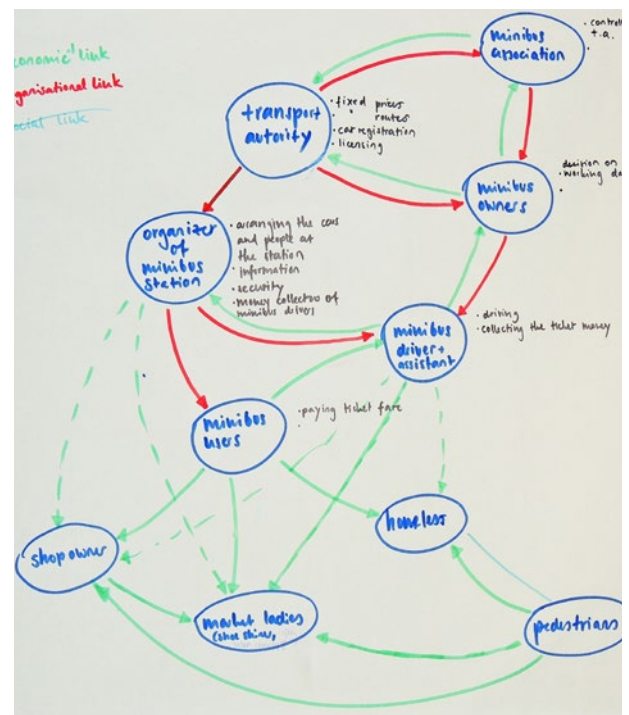 economic link
organisational link
social link
minibus
association
control
t.a.
transport
autority
fixed prices
" routes
car registration
licensing
minibus
owners
decision on
working da
organizer
of
minibus
station
arranging the cars
and people at
the station
information
security
money collectors of
minibus drivers
minibus
driver+
assistant
driving
collecting the ticket money
minibus
users
paying ticket fare
homeless
shop owner
market ladies
(shoe shiner,
pedestrians